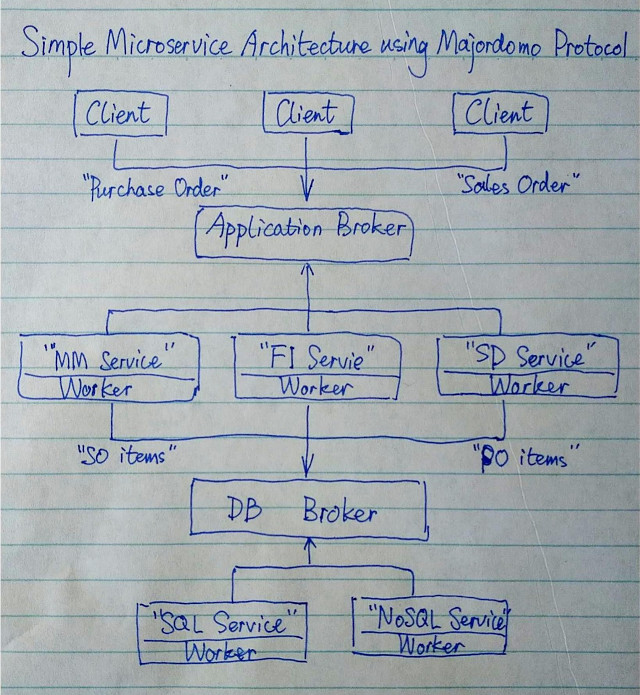 Simple Microservice Architecture using Majordomo Protocol
Client
Client
Client
"Purchase Order"
"Sales Order"
Application Broker
"MM Service"
Worker
"FI Servie"
Worker
"SD Service"
Worker
"SO items"
"PO items"
DB Broker
"SQL Service"
Worker
"NoSQL Service"
Worker